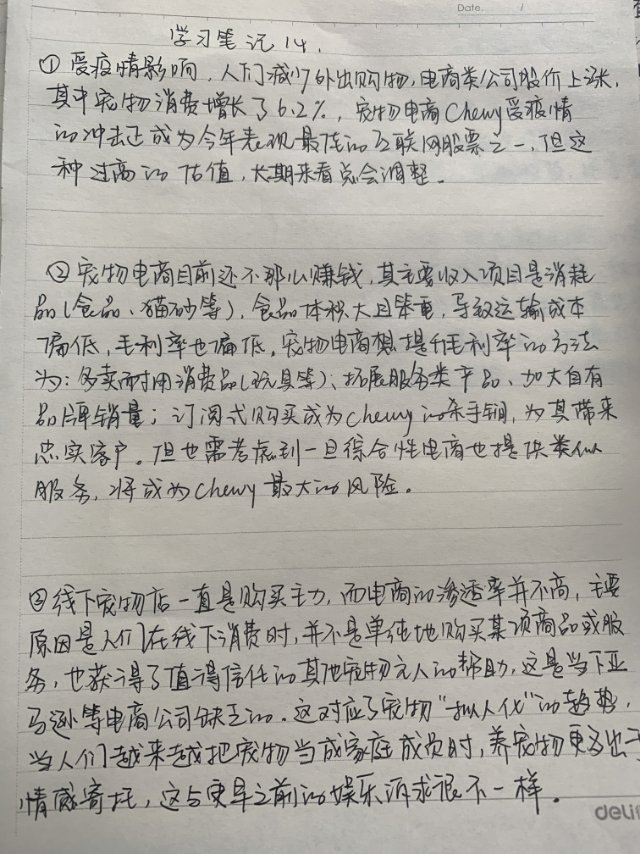 Date. /
学习笔记14.
① 受疫情影响，人们减少外出购物，电商类公司股价上涨，
其中宠物消费增长了6.2%，宠物电商Chewy受疫情
的冲击还成为今年表现最佳的互联网股票之一，但这
种过高的估值，长期来看总会调整。
② 宠物电商目前还不那么赚钱，其主要收入项目是消耗
品(食品、猫砂等)，食品体积大且笨重，导致运输成本
偏低，毛利率也偏低，宠物电商想提升毛利率的方法
为：多卖耐用消费品(玩具等)、拓展服务类产品、加大自有
品牌销量；订阅式购买成为chewy的杀手锏，为其带来
忠实客户。但也需考虑到一旦综合性电商也提供类似
服务，将成为chewy最大的风险。
③ 线下宠物店一直是购买主力，而电商的渗透率并不高，主要
原因是人们在线下消费时，并不是单纯地购买某项商品或服
务，也获得了值得信任的其他宠物主人的帮助，这是当下亚
马逊等电商公司缺乏的。这对应了宠物“拟人化”的趋势，
当人们越来越把宠物当成家庭成员时，养宠物更多出于
情感寄托，这与更早之前的娱乐诉求很不一样。
deli